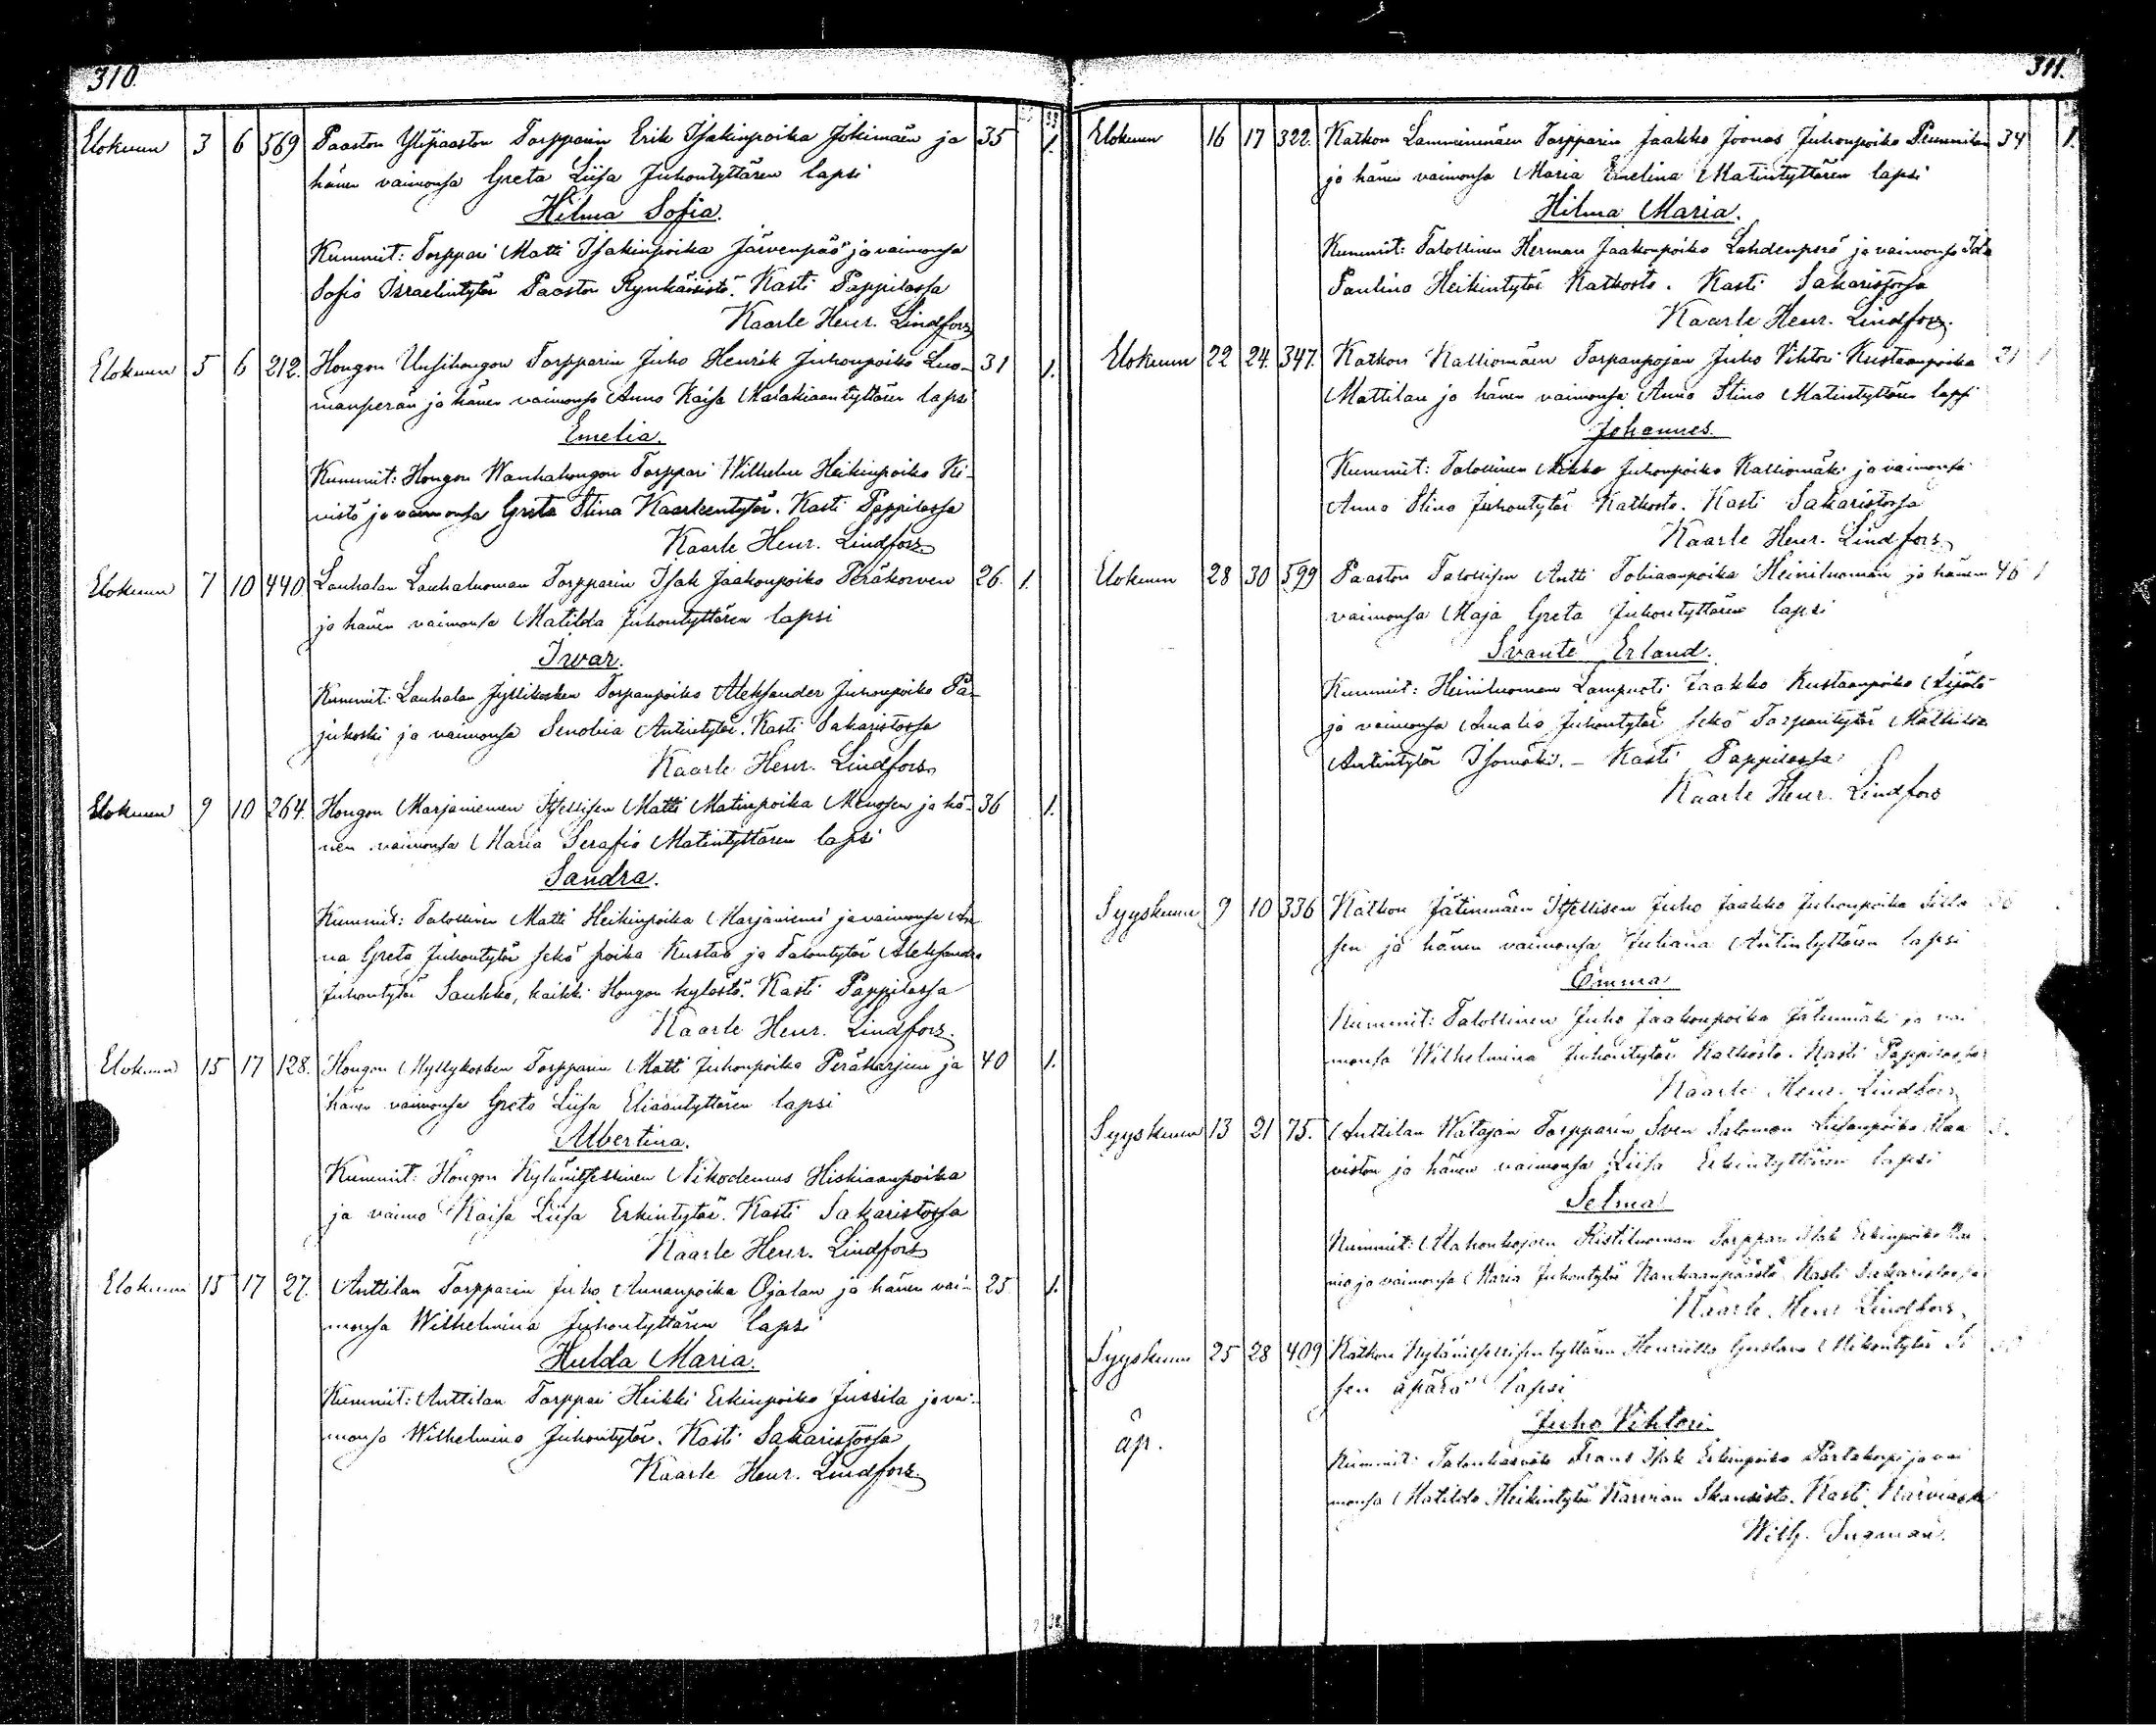 310.
Elokuun 3 6 569 Paaston Ylipaaston Torpparin Erik Isakinpoika Jokimäen ja 35 1.
hänen vaimonsa Greta Liisa Juhontyttären lapsi
Hilma Sofia.
Kummit: Torppari Matti Isakinpoika Järvenpää ja vaimonsa
Sofia Israelintytär Paaston Rynkäisistä. Kasti Pappilassa
Kaarle Henr. Lindfors
Elokuun 5 6 212. Hongon Uusihongon Torpparin Juho Henrik Juhonpoika Luo- 31 1.
manperän ja hänen vaimonsa Anna Kaisa Malakiaantyttären lapsi
Emelia.
Kummit: Hongon Wanhahongon Torppari Wilhelm Heikinpoika Ki-
vistö ja vaimonsa Greta Stina Kaarlentytär. Kasti Pappilassa
Kaarle Henr. Lindfors
Elokuun 7 10 440 Lauhalan Lauhaluoman Torpparin Isak Jaakonpoika Peräkorven 26. 1.
ja hänen vaimonsa Matilda Juhontyttären lapsi
Iwar.
Kummit: Lauhalan Jyllikosken Torpanpoika Aleksander Juhonpoika Pa-
jukoski ja vaimonsa Senobia Antintytär. Kasti Sakaristossa
Kaarle Henr. Lindfors
Elokuun 9 10 264. Hongon Marjaniemen Itsellisen Matti Matinpoika Menosen ja hä- 36 1.
nen vaimonsa Maria Serafia Matintyttären lapsi
Sandra.
Kummit: Talollinen Matti Heikinpoika Marjaniemi ja vaimonsa An
na Greta Juhontytär sekä poika Kustaa ja Talontytär Aleksandra
Juhontytär Saukko, kaikki Hongon kylästä. Kasti Pappilassa
Kaarle Henr. Lindfors.
Elokuun 15 17 128. Hongon Myllykosken Torpparin Matti Juhonpoika Peräharjun ja 40 1.
hänen vaimonsa Greta Liisa Eliaantyttären lapsi
Albertina.
Kummit: Hongon Kylänitsellinen Nikodemus Hiskiaanpoika
ja vaimo Kaisa Liisa Erkintytär. Kasti Sakaristossa
Kaarle Henr. Lindfors
Elokuun 15 17 27. Anttilan Torpparin Juho Annanpoika Ojalan ja hänen vai- 25 1.
monsa Wilhelmina Juhontyttären lapsi
Hulda Maria.
Kummit: Anttilan Torppari Heikki Erkinpoika Jussila ja vai-
monsa Wilhelmina Juhontytär. Kasti Sakaristossa
Kaarle Henr. Lindfors.
311.
Elokuun 16 17 322. Katkon Lamminmäen Torpparin Jaakko Joonas Juhonpoika 34 1.
ja hänen vaimonsa Maria Emelina Matintyttären lapsi
Hilma Maria.
Kummit: Talollinen Herman Jaakonpoika Lahdenperä ja vaimonsa Ida
Paulina Heikintytär Katkosta. Kasti Sakaristossa
Kaarle Henr. Lindfors.
Elokuun 22 24. 347. Katkon Kalliomäen Torpanpojan Juho Vihtori Kustaanpoika 21 1
Mattilan ja hänen vaimonsa Anna Stina Matintyttären lapsi
Johannes.
Kummit: Talollinen Mikko Juhonpoika Kalliomäki ja vaimonsa
Anna Stina Juhontytär Katkosta. Kasti Sakaristossa
Kaarle Henr. Lindfors
Elokuun 28 30 599 Paaston Talollisen Antti Tobiaanpoika Heiniluoman ja hänen 46 1
vaimonsa Maja Greta Juhontyttären lapsi
Svante Erland.
Kummit: Heiniluoman Lampuoti Jaakko Kustaanpoika
ja vaimonsa Amalia Juhontytär sekä Torparitytär Mathilda
Antintytär Isomäki. – Kasti Pappilassa
Kaarle Henr. Lindfors
Syyskuun 9 10 336 Katkon Jätinmäen Itsellisen Juho Jaakko Juhonpoika Silla
sen ja hänen vaimonsa Juliana Antintyttären lapsi
Emma
Kummit: Talollinen Juho Jaakonpoika Jätinmäki ja vai
monsa Wilhelmina Juhontytär Katkosta. Kasti Pappilassa
Kaarle Henr. Lindfors
Syyskuun 13 21 75. Anttilan Watajan Torpparin Sven Salomon Liisanpoika Haa
viston ja hänen vaimonsa Liisa Erkintyttären lapsi
Selma
Kummit: Alahonkajoen Ristiluoman Torppari Isak Erkinpoika
ja vaimonsa Maria Juhontytär Kankaanpäästä. Kasti Sakaristossa
Kaarle Henr Lindfors
Syyskuun 25 28 409 Katkon Kylänitsellisen tyttären Henriikka Gustava Mikontytär
sen äpärä lapsi
Juho Vihtori.
äp.
Kummit: Talonhaavolta Frans Isak Erkinpoika Partakorpi ja vai
monsa Matilda Heikintytär Karvian Skanssista. Kasti Karviassa
Wilh. Ingman.